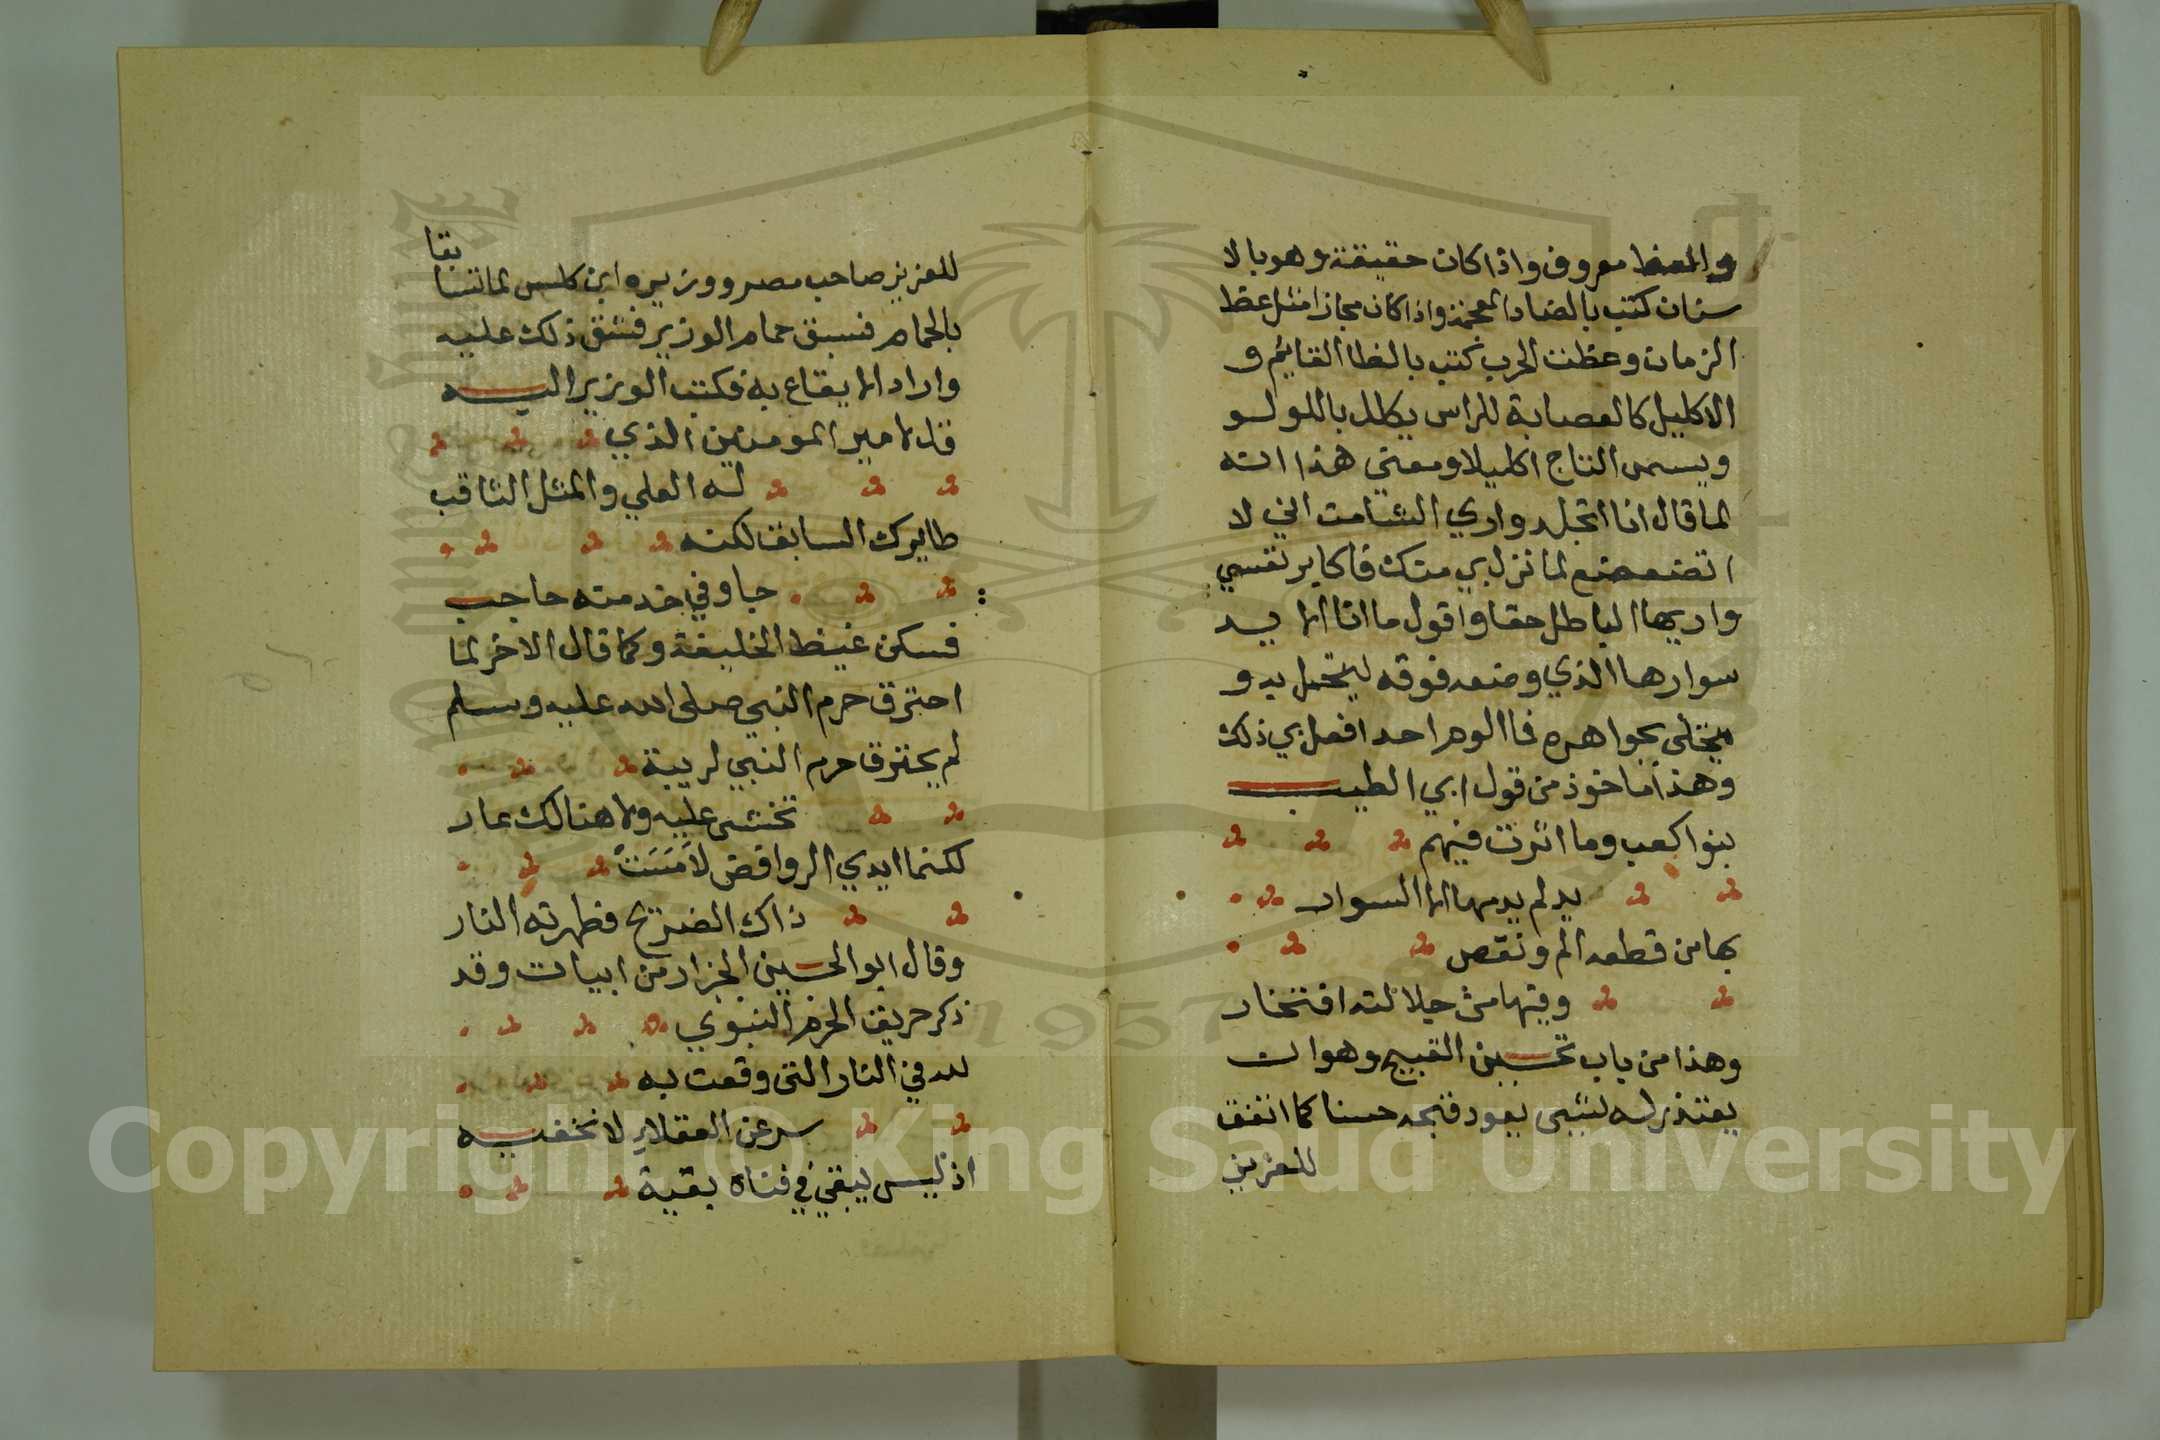 والعض معروف واذا كان حقيقة وهو بالا
سنان كتب بالضاد المعجمة واذا كان مجازا مثل عظ
الزمان وعظت الحرب كتب بالظا القايم و
الاكليل كالعصابة للراس يكلل باللولو
ويسمى التاج اكليلا ومعنى هذا انه
لما قال انا اتجلد واري الشامت اني لا
اتضعضع لما نزل بي منك فاكابر نفسي
واريها الباطل حقا واقول ما انا الا يد
سوارها الذي وضعه فوقه ليتجمل به و
يتحلى بجواهره فما الوم احد افعل بي ذلك
وهذا ماخوذ من قول ابي الطيب
بنوا كعب وما اثرت فيهم
يد لم يدمها الا السوار
بها من قطعه الم ونقص
وفيها من جلالته افتخار
وهذا من باب تحسين القبيح وهو ان
يعتذر له بشي يعود قبحه حسنا كما اتفق
للعزيز
للعزيز صاحب مصر ووزيره ابن كلس لما تسابقا
بالحمام فسبق حمام الوزير فشق ذلك عليه
واراد الايقاع به فكتب الوزير اليه
قل لامير المومنين الذي
له العلي والمثل الثاقب
طايرك السابق لكنه
جا وفي خدمته حاجب
فسكن غيظ الخليفة وكما قال الاخر لما
احترق حرم النبي صلى الله عليه وسلم
لم يحترق حرم النبي لريبة
تخشى عليه ولا هنالك عار
لكنما ايدي الروافض لامست
ذاك الضريح فطهرته النار
وقال ابو الحسين الجزار من ابيات وقد
ذكر حريق الحرم النبوي
لله في النار التي وقعت به
سر عن العقلاء لا تخفيه
اذ ليس يبقي في فناه بقية
Copyright © King Saud University
1957